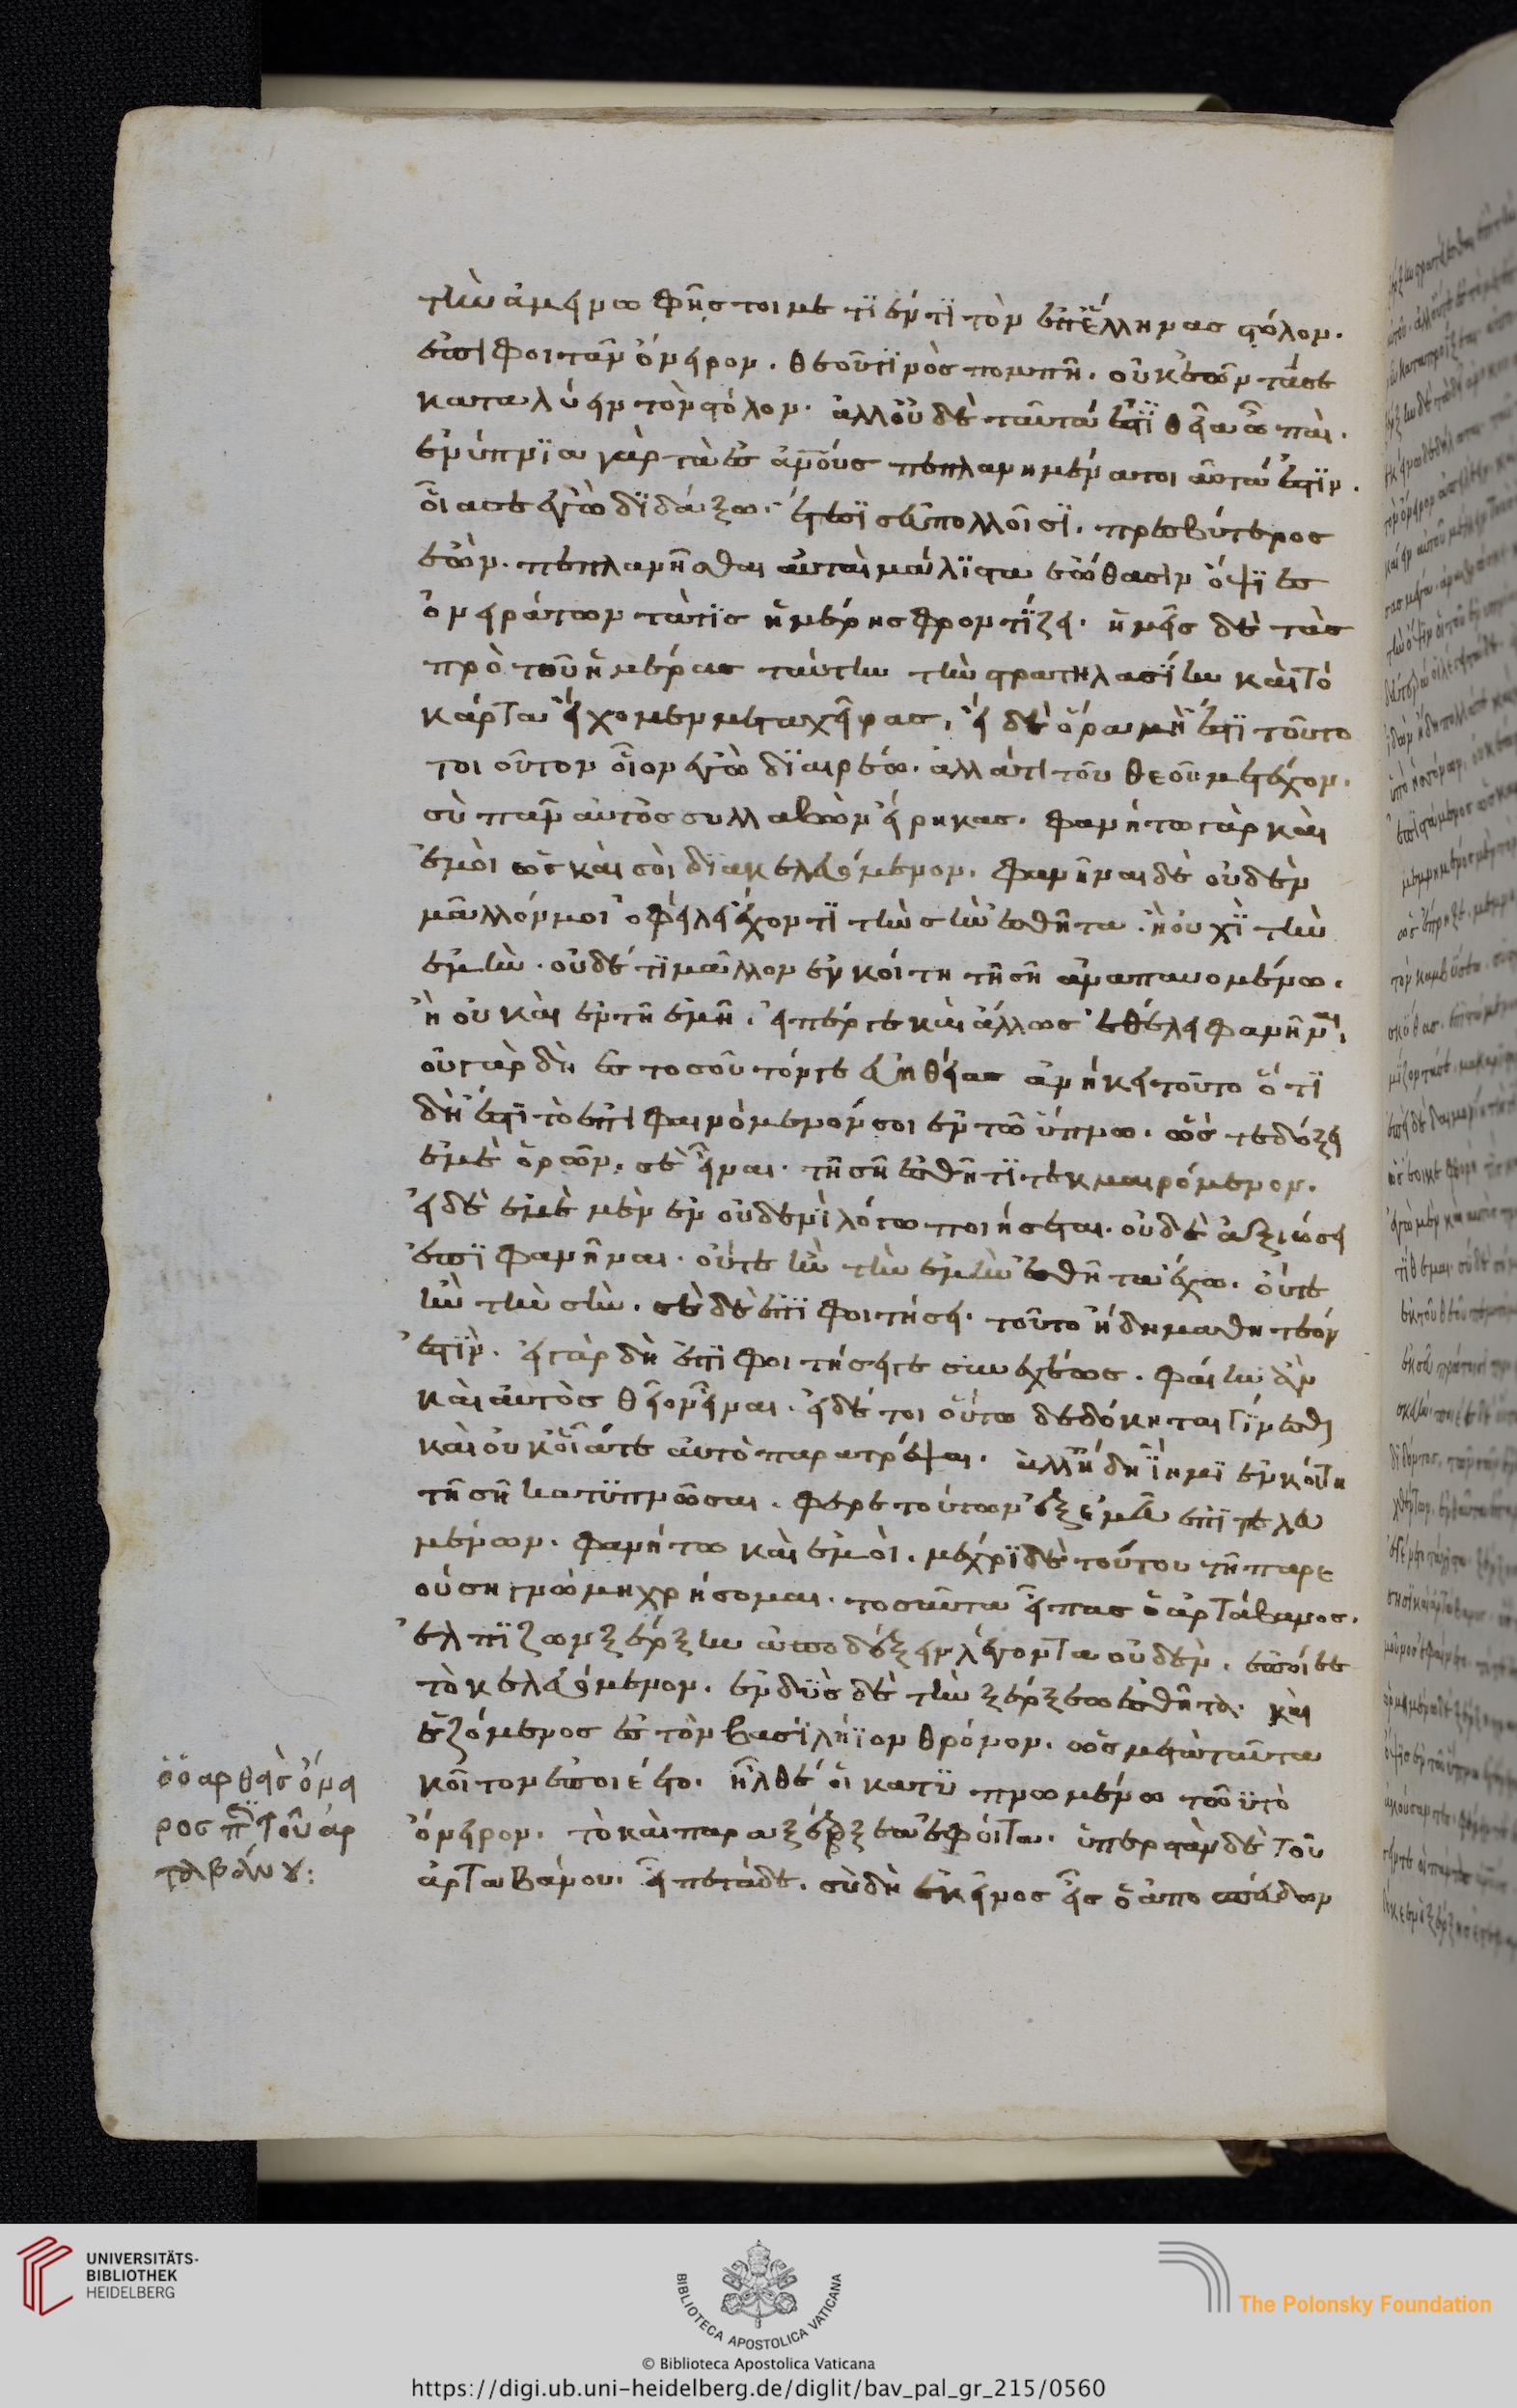 τὴν ἀμείνω φῄς τοι μετιέντι τὸν ἐπ' ἕλληνας στόλον.
ἐπιφοιτᾶν ὄνειρον. θεοῦ τινὸς πομπῇ. οὐκ ἐῶν τά σε
καταλύειν τὸν στόλον. ἀλλ' οὐδὲ ταῦτά ἐστι θεῖα ὦ παῖ.
ἐνύπνια γὰρ τὰ ἐς ἀνθρώπους πεπλανημένα τοιαῦτά ἐστιν.
οἷά σε ἐγὼ διδάξω. ἔτεσι σεῦ πολλοῖσι. πρεσβύτερος
ἐών. πεπλανῆσθαι αὗται μάλιστα ἐώθασιν ὄψιες
ὀνειράτων τά τις ἡμέρης φροντίζει. ἡμεῖς δὲ τὰς
πρὸ τοῦ ἡμέρας ταύτην τὴν στρατηλασίην καὶ τὸ
κάρτα εἴχομεν μετὰ χεῖρας. εἰ δὲ ἄρα μή ἐστι τοῦτο
τοιοῦτον οἷον ἐγὼ διαιρέω. ἀλλά τι τοῦ θεοῦ μετέχον.
σὺ πᾶν αὐτὸς συλλαβὼν εἴρηκας. φανήτω γὰρ καὶ
ἐμοὶ ὡς καὶ σοὶ διακελευόμενον. φανῆναι δὲ οὐδὲν
μᾶλλόν μοι ὀφείλει ἔχοντι τὴν σὴν ἐσθῆτα. ἢ οὐχὶ τὴν
ἐμήν. οὐδέ τι μᾶλλον ἐν κοίτῃ τῇ σῇ ἀναπαυομένω.
ἢ οὐ καὶ ἐν τῇ ἐμῇ. εἴπέρ γε καὶ ἄλλως ἐθέλει φανῆναι.
οὐ γὰρ δὴ ἐς τοσοῦτόν γε εὐηθείας ἀνήκει τοῦτο ὅ τι
δή ἐστι τὸ ἐπιφαινόμενόν σοι ἐν τῷ ὕπνω. ὥστε δόξει
ἐμὲ ὁρῶν. σὲ εἶναι. τῇ σῇ ἐσθῆτι τεκμαιρόμενον.
εἰ δὲ ἐμὲ μὲν ἐν οὐδενὶ λόγω ποιήσεται. οὐδὲ ἀξιώσει
ἐπιφανῆναι. οὔτε ἢν τὴν ἐμὴν ἐσθῆτα ἔχω. οὔτε
ἢν τὴν σήν. σὲ δὲ ἐπιφοιτήσει. τοῦτο ἤδη μαθητέον
ἐστίν. εἰ γὰρ δὴ ἐπιφοιτήσει γε συνεχέως. φαίην ἂν
καὶ αὐτὸς θεῖον εἶναι. εἰ δέ τοι οὕτω δεδόκηται γίνεσθαι
καὶ οὐκ οἷά τε αὐτὸ παρατρέψαι. ἀλλ' ἤδη δεῖ ἐμὲ ἐν κοίτῃ
τῇ σῇ κατυπνῶσαι. φέρε τούτων ἐξ ἐμεῦ ἐπιτελευ
μένων. φανήτω καὶ ἐμοί. μέχρι δὲ τούτου τῇ παρε
ούσῃ γνώμῃ χρήσομαι. τοσαῦτα εἴπας ὁ ἀρτάβανος.
ἐλπίζων ξέρξην ἀποδέξειν λέγοντα οὐδέν. ἐποίεε
τὸ κελευόμενον. ἐνδὺς δὲ τὴν ξέρξεω ἐσθῆτα. καὶ
ἑζόμενος ἐς τὸν βασιλήϊον θρόνον. ὡς μετὰ ταῦτα
κοῖτον ἐποιέετο. ἦλθέ οἱ κατυπνωμένω τὠυτὸ
ὄνειρον. τὸ καὶ παρὰ ξέρξεα ἐφοίτα. ὑπερστὰν δὲ τοῦ
ἀρταβάνου. εἶπε τάδε. σὺ δὴ ἐκεῖνος εἷς ὁ ἀποσπεύδων
ὁραθεὶς ὄνει
ρος τοῦ ἀρ
ταβάνου:
UNIVERSITÄTS-
BIBLIOTHEK
HEIDELBERG
BIBLIOTECA APOSTOLICA VATICANA
© Biblioteca Apostolica Vaticana
The Polonsky Foundation
https://digi.ub.uni-heidelberg.de/diglit/bav_pal_gr_215/0560